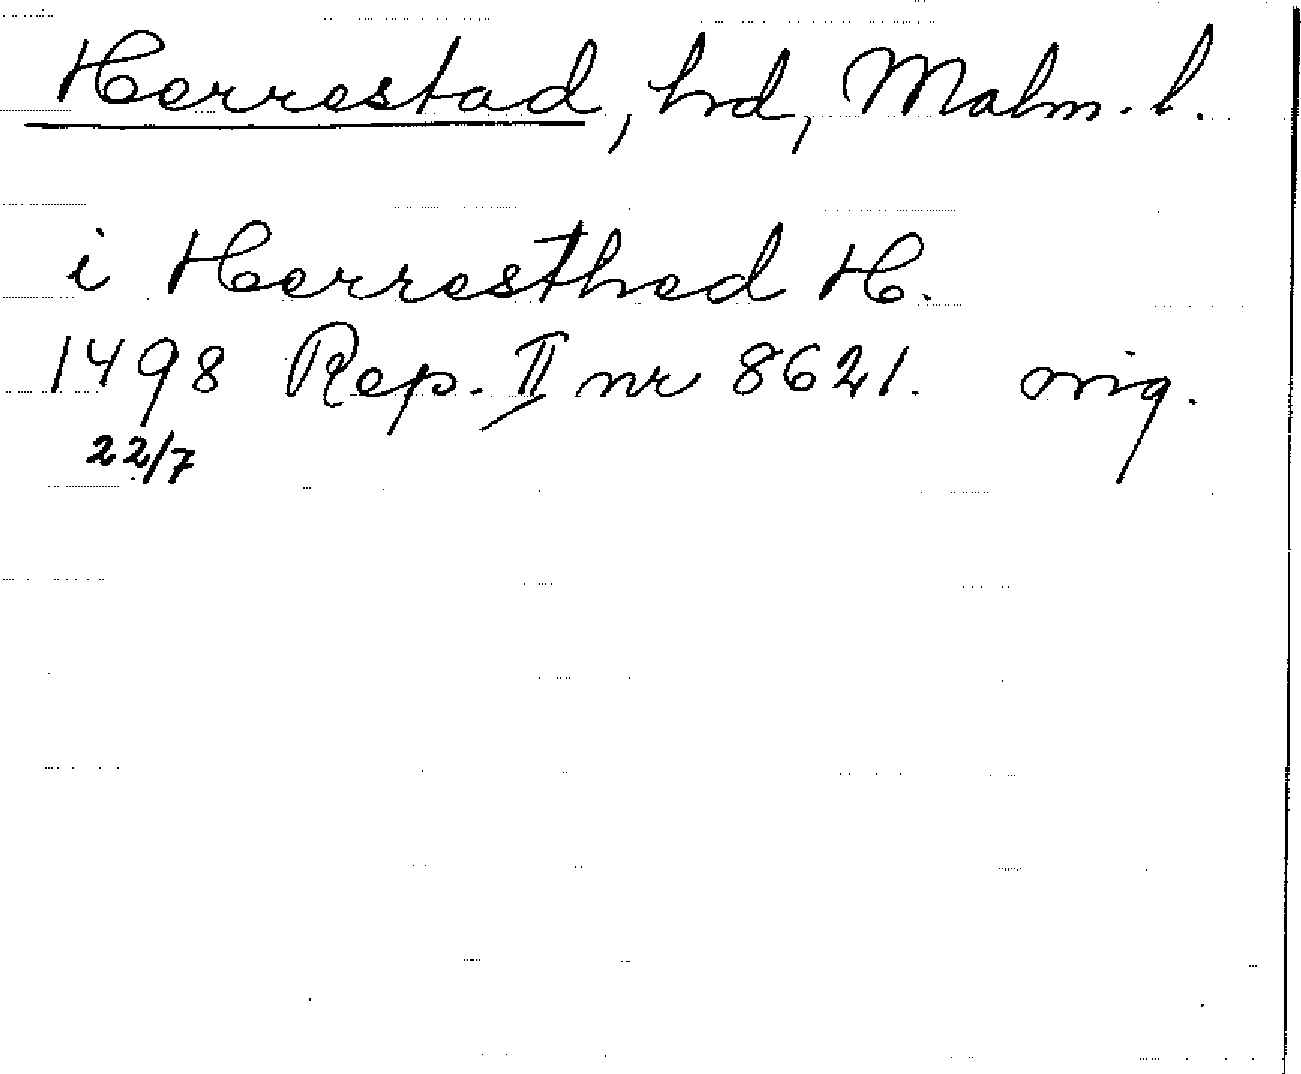 Herrestad, hrd, Malm. l.
i Herresthed H.
1498 Rep. II nr 8621. orig.
22/7